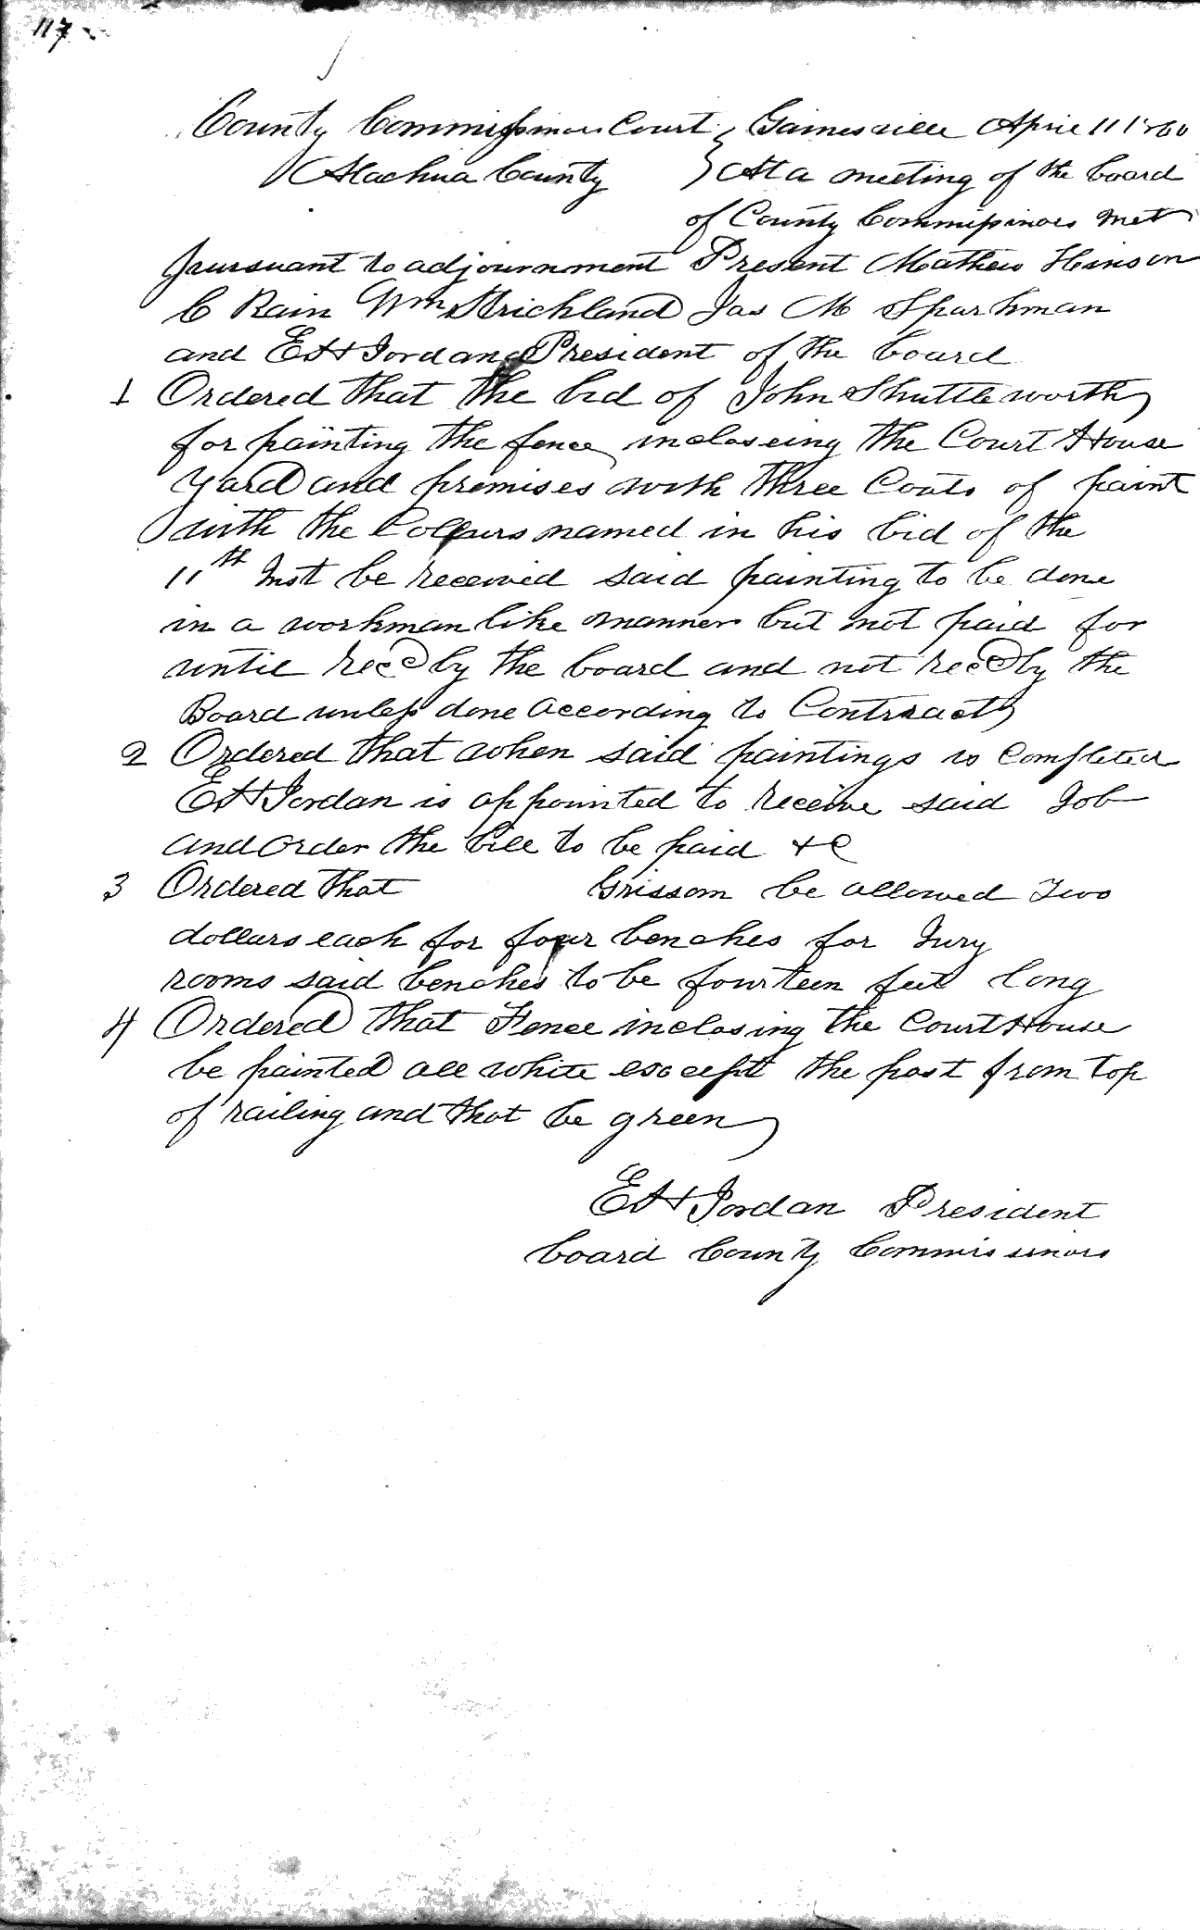 117
County Commissinors Court } Gainesville April 11 1860
Alachua County } At a meeting of the board
of County Commissinors met
pursuant to adjournment Present Mathew Hinson
C Rain Wm Strickland Jas M Sparkman
and E H Jordan President of the board
1 Ordered that the bid of John Shuttleworth
for painting the fence incloseing the Court House
yard and premises with three Coats of paint
with the Colours named in his bid of the
11th Inst be received said painting to be done
in a workmanlike manner but not paid for
until recd by the board and not recd by the
Board unless done according to Contract
2 Ordered that when said paintings is completed
E H Jordan is appointed to receive said Job
and order the bill to be paid &C
3 Ordered that Grissom be allowed Two
dollars each for four benches for Jury
rooms said benches to be fourteen feet long
4 Ordered that Fence inclosing the Court House
be painted all white except the post from top
of railing and that be green
E H Jordan President
board County Commissinors